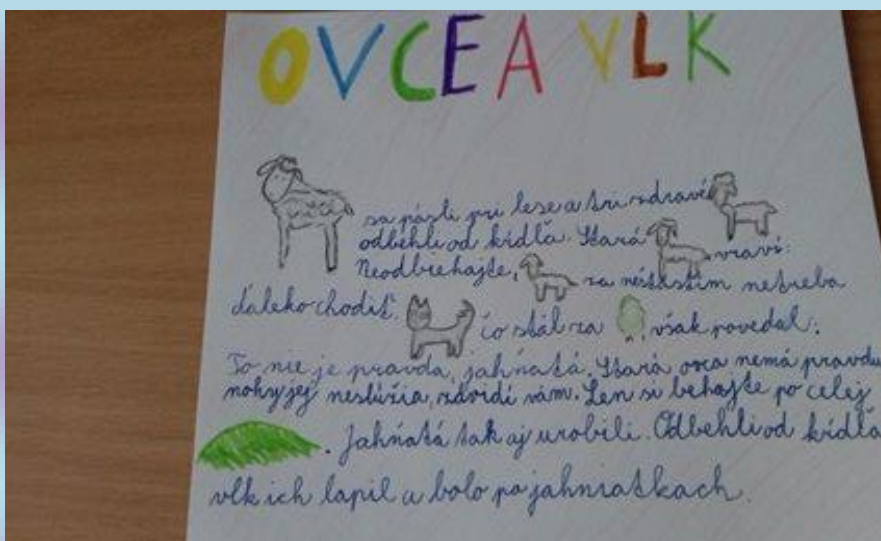 OVCE A VLK
sa pásli pri lese a tri zdravé
odbehli od kŕdľa. Stará vraví:
Neodbiehajte, za nešťastím netreba
ďaleko chodiť. čo stál za , však povedal:
To nie je pravda, jahňatá. Stará ovca nemá pravdu
nohy jej neslúžia, závidí vám. Len si behajte po celej
. Jahňatá tak aj urobili. Odbehli od kŕdľa
vlk ich lapil a bolo po jahniatkach.